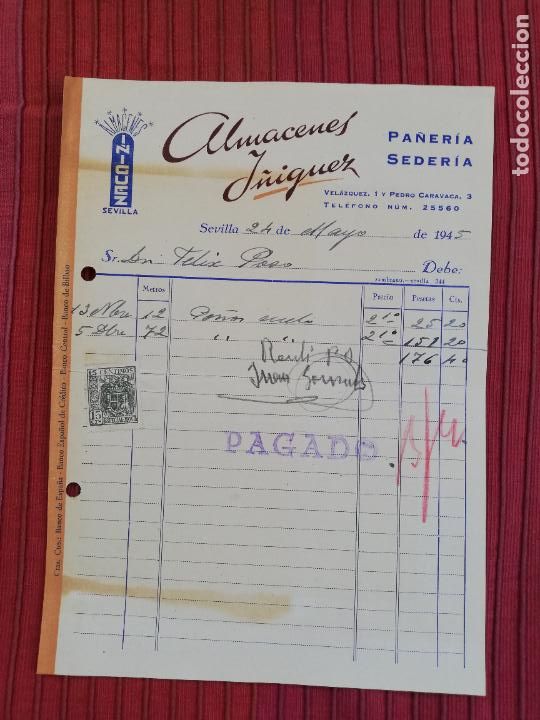 ALMACENES
IÑIGUEZ
SEVILLA
Almacenes
Iñiguez
PAÑERÍA
SEDERÍA
VELÁZQUEZ, 1 Y PEDRO CARAVACA, 3
TELEFONO NÚM. 25560
Sevilla 24 de Mayo de 1945
Sr. Dn. Felix Poso Debe:
zambrano.-sevilla 344
Metros Precio Pesetas Cts.
13 Nbre 12 21º 25 20
5 Dbre 72 " " 21º 151 20
176 40
Recibí P.A.
Juan
15 CENTIMOS
15
ESPECIAL MOVIL
PAGADO
Ctas. Ctes.: Banco de España - Banco Español de Crédito - Banco Central - Banco de Bilbao
todocoleccion.net